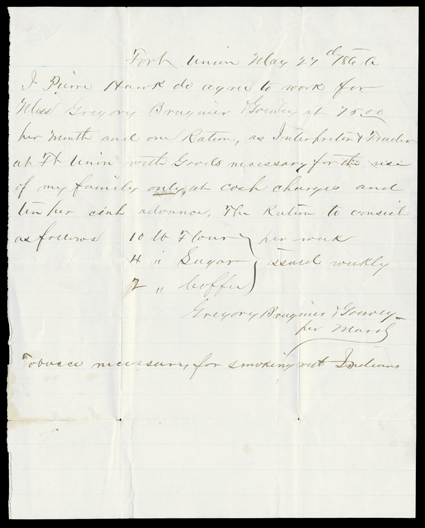 Fort Union May 27th 186
I Pierre Hawk do agree to work for
Gregory Bruguier & Goewey at 75.00
per Month and one Ration, as Interpreter & Trader
at Ft Union with Goods necessary for the use
of my family only, at cash charges and
ten per cent advance, The Ration to consist
as follows 10 lb Flour } per week
4 " Sugar } issued weekly
2 " Coffee }
Gregory Bruguier & Goewey
per Marsh
Tobacco necessary for smoking with Indians